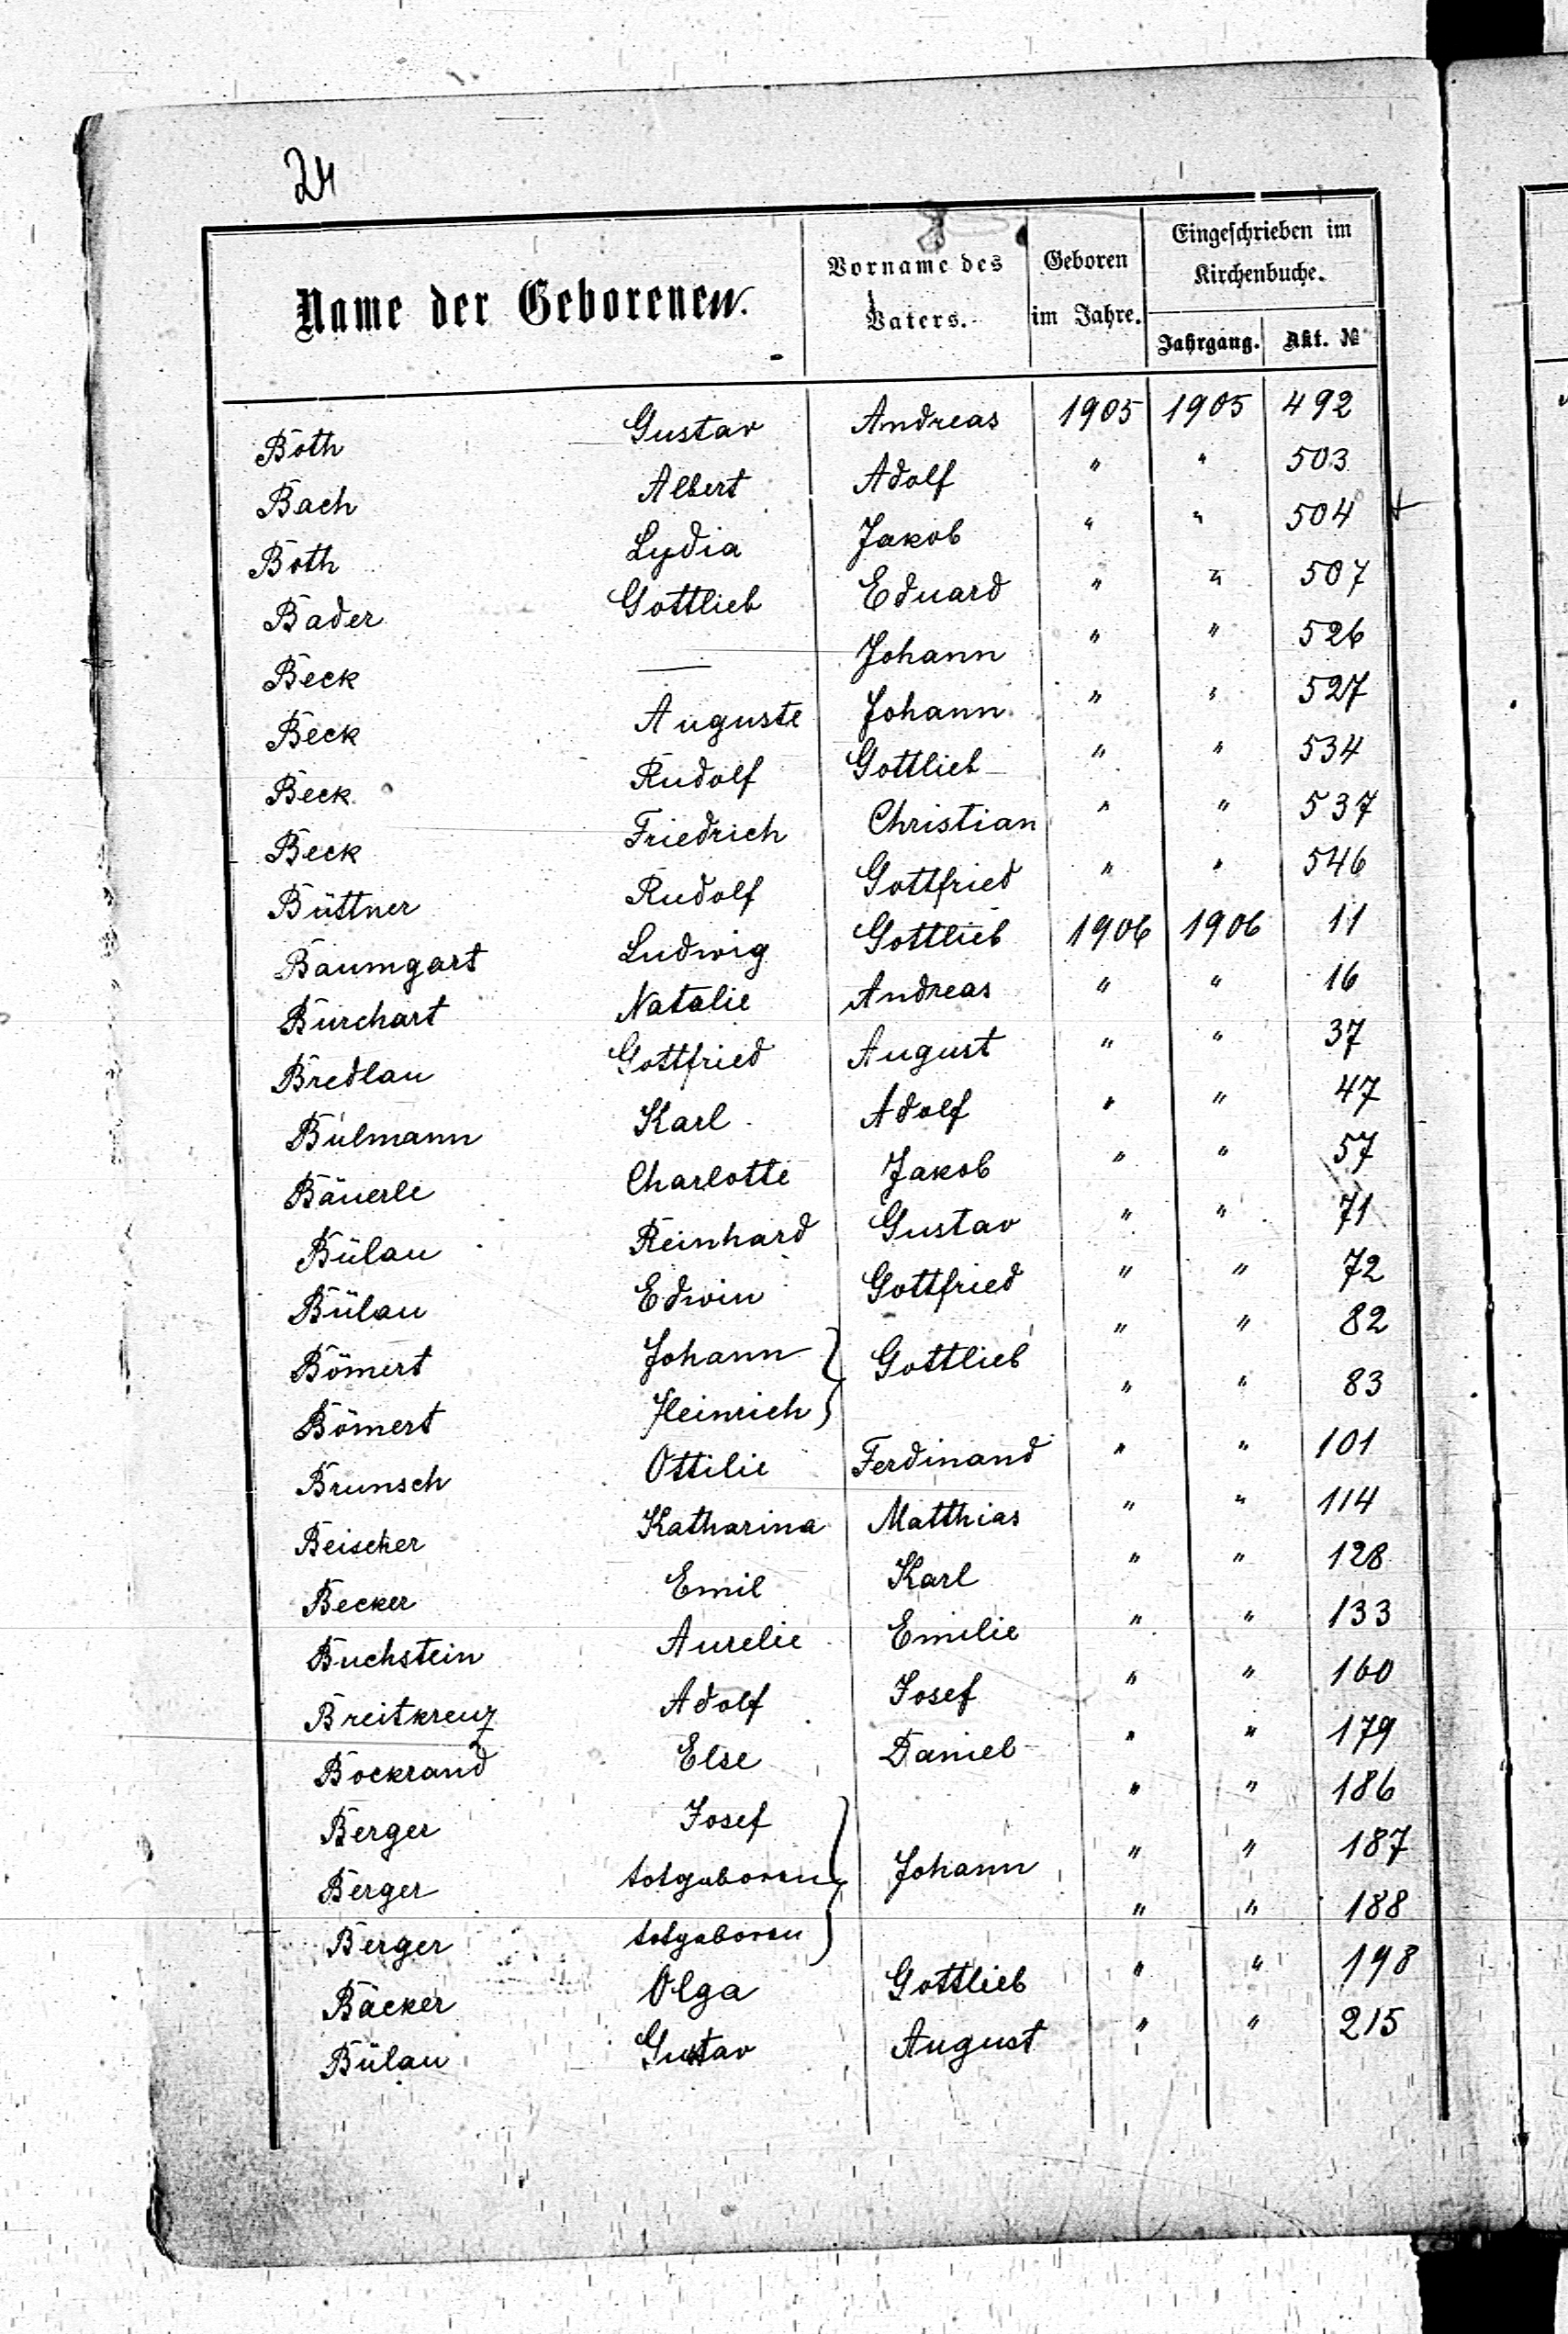 24
Name der Geborenen.
Vorname des Vaters.
Geboren im Jahre.
Eingeschrieben im Kirchenbuche.
Jahrgang. Akt. №
Both Gustav Andreas 1905 1905 492
Bach Albert Adolf " " 503
Both Lydia Jakob " " 504
Bader Gottlieb Eduard " " 507
Beck — Johann " " 526
Beck Auguste Johann " " 527
Beck Rudolf Gottlieb " " 534
Beck Friedrich Christian " " 537
Büttner Rudolf Gottfried " " 546
Baumgart Ludwig Gottlieb 1906 1906 11
Burchart Natalie Andreas " " 16
Bredlau Gottfried August " " 37
Bulmann Karl Adolf " " 47
Bäuerle Charlotte Jakob " " 57
Bülau Reinhard Gustav " " 71
Bülau Edwin Gottfried " " 72
Bömert Johann } Gottlieb " " 82
Bömert Heinrich } " " 83
Brunsch Ottilie Ferdinand " " 101
Beischer Katharina Matthias " " 114
Becker Emil Karl " " 128
Buchstein Aurelie Emilie " " 133
Breitkreuz Adolf Josef " " 160
Bockrand Else Daniel " " 179
Berger Josef } " " 186
Berger totgeboren } Johann " " 187
Berger totgeboren } " " 188
Bäcker Olga Gottlieb " " 198
Bülau Gustav August " " 215